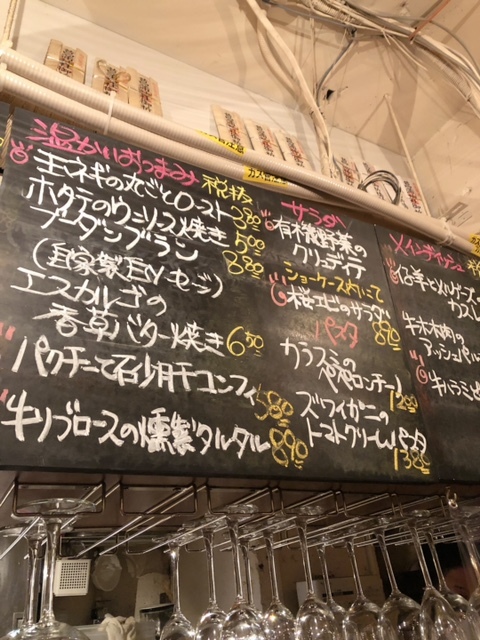 温かいおつまみ 税抜
玉ネギの丸ごとロースト 380
ホタテのウニソース焼き 500
ブーダンブラン 880
(自家製白ソーセージ)
エスカルゴの
香草バター焼き 650
パクチーと石少肝コンフィ 580
牛リブロースの燻製タルタル 890
サラダ
有機野菜の
クリュディテ
ショーケース内にて
桜エビのサラダ 890
パスタ
カラスミの
ペペロンチーノ 1200
ズワイガニの
トマトクリームパスタ 1380
メインディッシュ 税
カスレ
牛ホホ肉の
アッシュパル
牛ハラミ